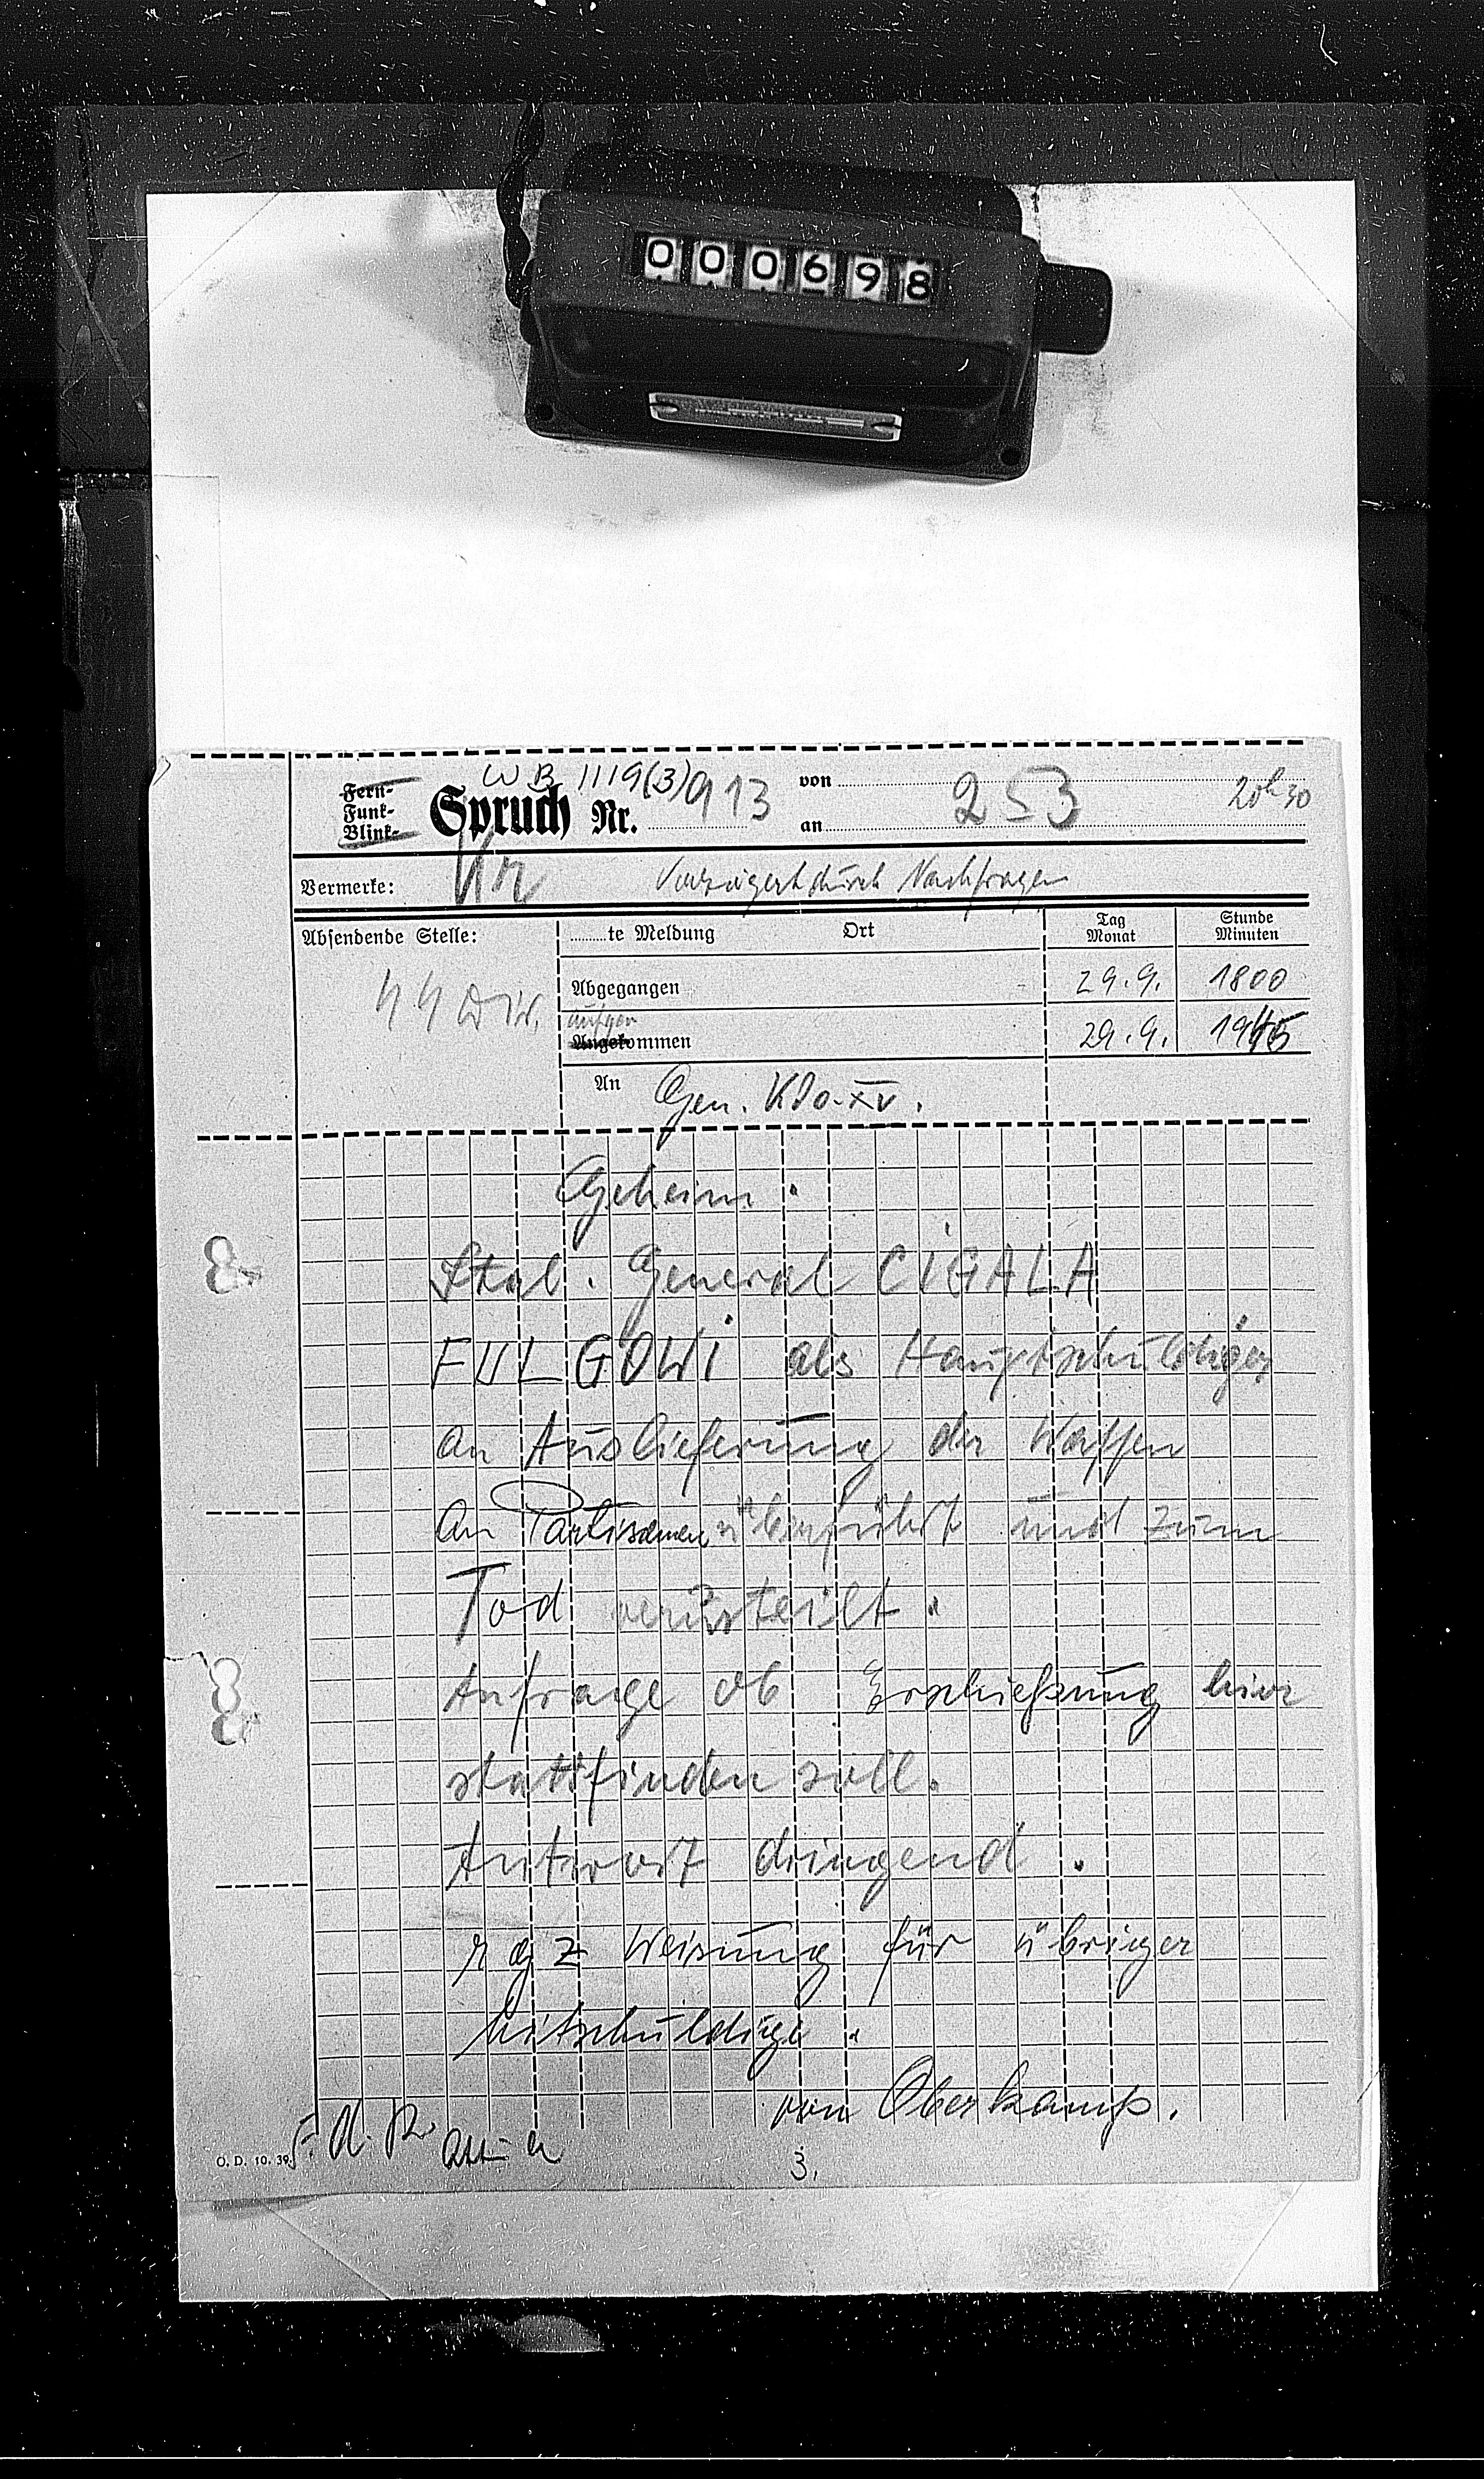 000698
Fern-
Funk-
Blink-
Spruch Nr. 913
WB 1119(3)
von
an
253
20h30
Vermerke: Kr
Verzögert durch Nachfragen
Absendende Stelle:
te Meldung Ort
Tag
Monat
Stunde
Minuten
Abgegangen 29.9. 1800
aufgen
Angekommen 29.9. 1945
An Gen. Kdo. XV.
Geheim.
Ital. General CIGALA
FULGOWI als Hauptschuldiger
an Auslieferung der Waffen
an Partisanen überführt und zum
Tod verurteilt.
Anfrage ob Erschießung hier
stattfinden soll.
Antwort dringend.
Weisung für übriger
Mitschuldige.
von Oberkamp.
F.d.R.
O.D. 10. 39.
3.